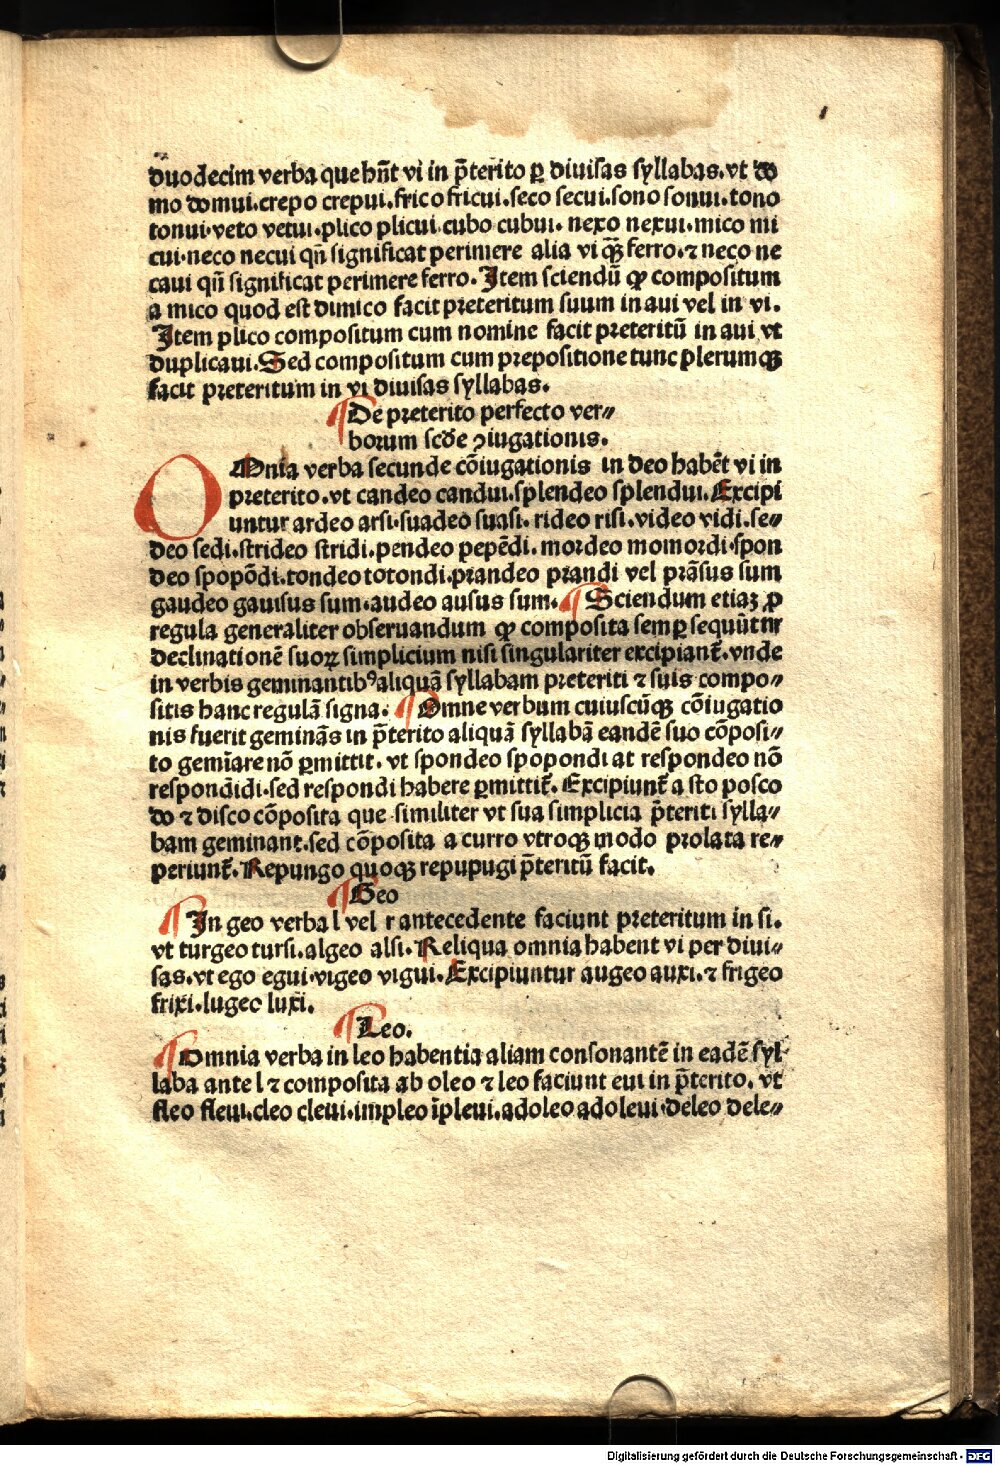 duodecim verba que hn̄t vi in p̄terito ꝑ diuisas syllabas.vt do
mo domui.crepo crepui.frico fricui.seco secui.sono sonui.tono
tonui.veto vetui.plico plicui.cubo cubui. nexo nexui.mico mi
cui.neco necui qn̄ significat perimere alia vi qȝ̄ ferro.⁊ neco ne
caui qn̄ significat perimere ferro. Item sciendū ꝙ compositum
a mico quod est dimico facit preteritum suum in aui vel in vi.
Item plico compositum cum nomine facit preteritū in aui vt
duplicaui.Sed compositum cum prepositione tunc plerumqȝ
facit preteritum in vi diuisas syllabas.
¶De preterito perfecto ver⸗
borum scd̄e ꝯiugationis.
OMnia verba secunde cōiugationis in deo habēt vi in
preterito.vt candeo candui.splendeo splendui.Excipi
untur ardeo arsi.suadeo suasi. rideo risi.video vidi.se⸗
deo sedi.strideo stridi.pendeo pepēdi. mordeo momordi.spon
deo spopōdi.tondeo totondi.prandeo prandi vel prāsus sum
gaudeo gauisus sum.audeo ausus sum.¶Sciendum etiaȝ ꝓ
regula generaliter obseruandum ꝙ composita semꝑ sequūtur
declinationē suoꝝ simplicium nisi singulariter excipiant᷑.vnde
in verbis geminantibꝰ aliquā syllabam preteriti ⁊ suis compo⸗
sitis hanc regulā signa. ¶Omne verbum cuiuscūqȝ cōiugatio
nis fuerit geminās in p̄terito aliquā syllabā eandē suo cōposi⸗
to gemīare nō ꝑmittit. vt spondeo spopondi at respondeo nō
respondidi.sed respondi habere ꝑmittit᷑. Excipiunt᷑ a sto posco
do ⁊ disco cōposita que similiter vt sua simplicia p̄teriti sylla⸗
bam geminant.sed cōposita a curro vtroqȝ modo prolata re⸗
periunt᷑.Repungo quoqȝ repupugi p̄teritū facit.
¶Geo
¶In geo verba l vel r antecedente faciunt preteritum in si.
vt turgeo tursi.algeo alsi.Reliqua omnia habent vi per diui⸗
sas.vt ego egui.vigeo vigui.Excipiuntur augeo auxi.⁊ frigeo
frixi.lugeo luxi.
¶Leo.
¶Omnia verba in leo habentia aliam consonantē in eadē syl
laba ante l ⁊ composita ab oleo ⁊ leo faciunt eui in p̄terito. vt
fleo fleui.cleo cleui.impleo īpleui.adoleo adoleui.deleo dele⸗
Digitalisierung gefördert durch die Deutsche Forschungsgemeinschaft - DFG